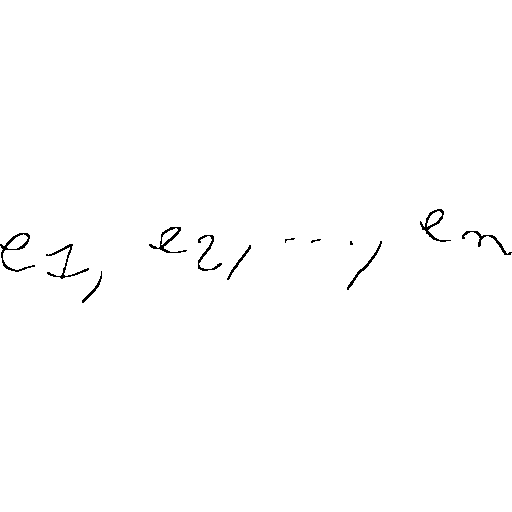 e₁, e₂, ..., eₙ